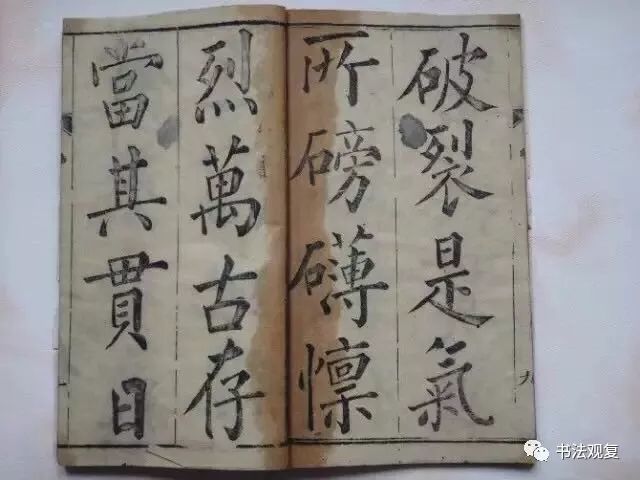 破裂是氣
所磅礴懔
烈萬古存
當其貫日
九
书法观复